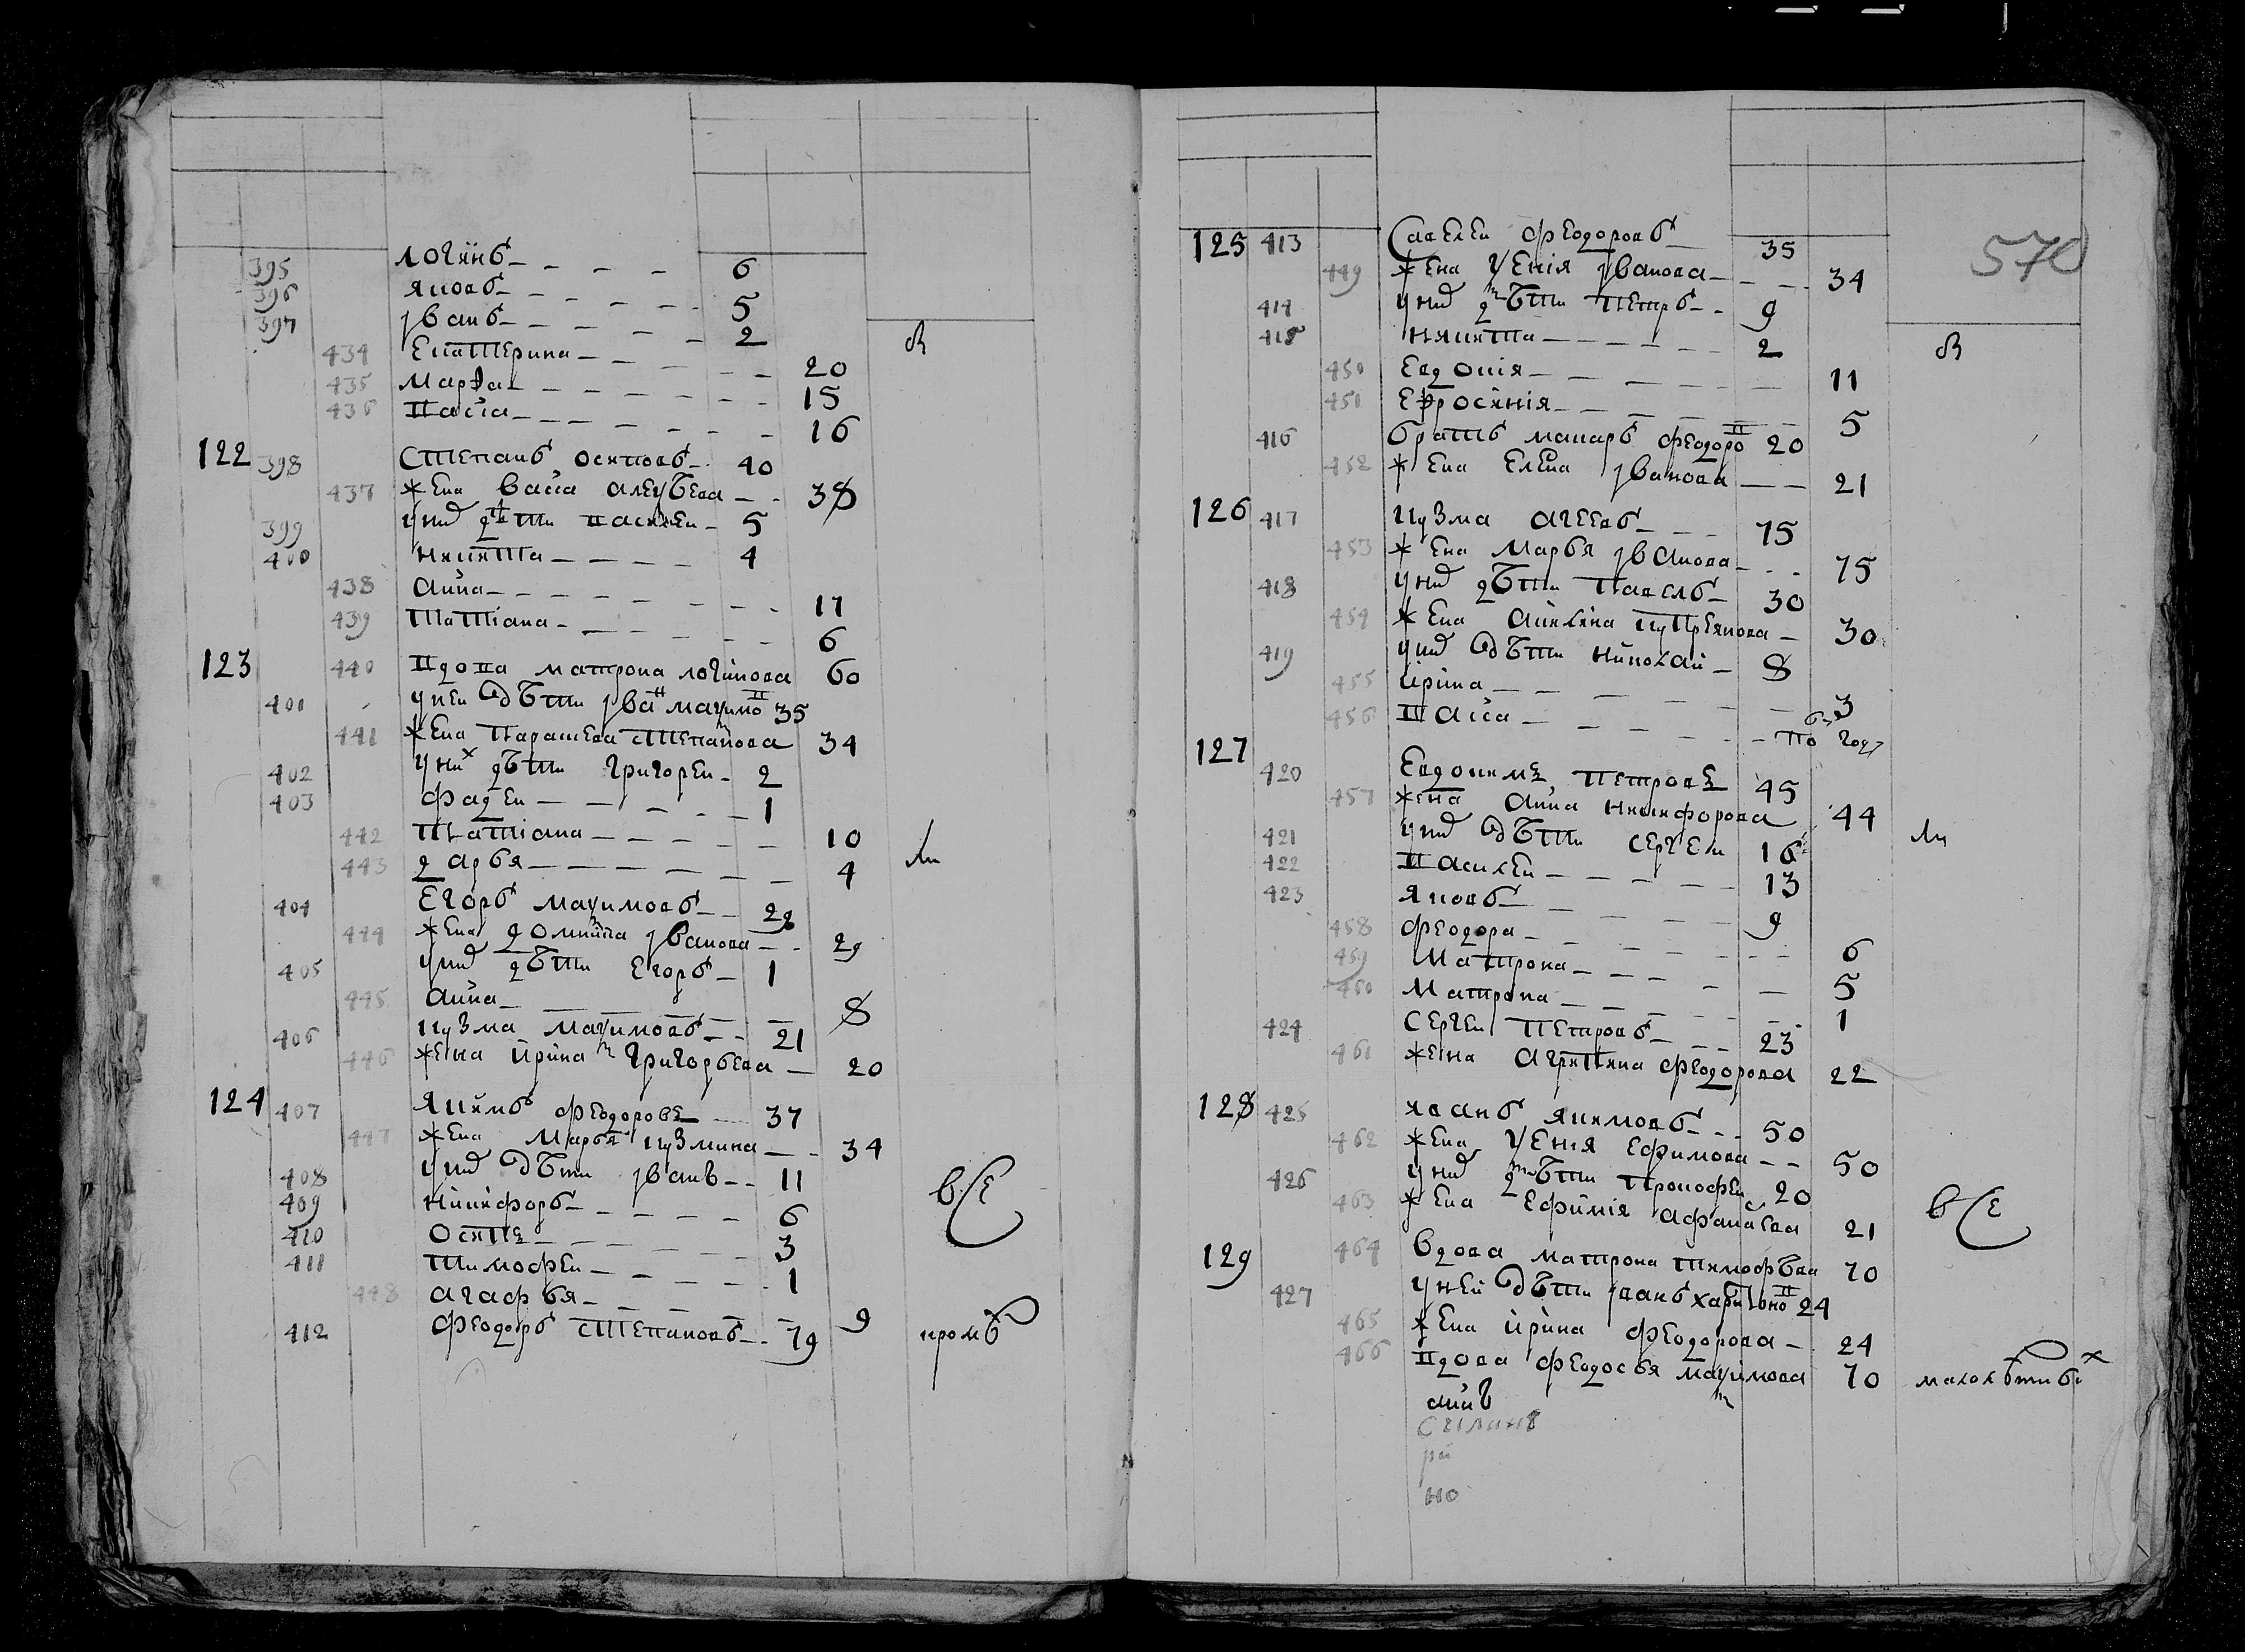 395 Логинъ 6
396 Яковъ 5
397 Іванъ 2
В
434 Екатерина 20
435 Марѳа 15
436 Васса 16
122 398 Степанъ Осиповъ 40
437 жена Васса Алеѯѣева 38
399 у нихъ дѣти Василеи 5
400 Никита 4
438 Анна 17
439 Татіана 6
123 440 Вдова Матрона Логинова 60
401 у неи дѣти Іванъ Маѯимовъ 35
441 жена Параскева Степанова 34
402 у нихъ дѣти Григореи 2
403 Фадеи 1
442 Татіана 10
443 Дарья 4
ли
404 Егоръ Маѯимовъ 28
444 жена Домникia Іванова 29
405 у нихъ дѣти Егоръ 1
445 Анна 8
406 Кузма Маѯимовъ 21
446 жена Ирина Григорьева 20
124 407 Якимъ Феодоровъ 37
447 жена Марья Кузмина 34
408 у нихъ дѣти Іванъ 11
409 Никифоръ 6
все
410 Осипъ 3
411 Тимофеи 1
448 Агафья 9
412 Феодоръ Степановъ 79
кромѣ
570
125 413 Савелеи Феодоровъ 35
449 жена Ѯенія Іванова 34
414 у нихъ дѣти Петръ 9
415 Никита 2
В
450 Евдокія 11
451 Ефросинія 5
416 братъ Макаръ Феодоровъ 20
452 жена Елена Іванова 21
126 417 Кузма Агеевъ 75
453 жена Марья Іванова 75
418 у нихъ дѣти Павелъ 30
454 жена Акилина Куприянова 30
419 у нихъ дѣти Николай 8
455 Ирина 3
456 Васса по году
127 420 Евдокимъ Петровъ 45
457 жена Анна Никифорова 44
ли
421 у нихъ дѣти Сергеи 16
422 Василеи 13
423 Яковъ 9
458 Феодора 6
459 Матрона 5
460 Матрона 1
424 Сергеи Петровъ 23
461 жена Агрипина Феодорова 22
128 425 Иванъ Якимовъ 50
462 жена Ѯения Ефимова 50
426 у нихъ дѣти Прокофеи 20
463 жена Ефимія Афанасева 21
все
129 464 Вдова Матрона Тимофѣева 70
427 у неи дѣти Іванъ Харитоновъ 24
465 жена Ирина Феодорова 24
466 Вдова Феодосья Маѯимова 70
малолѣтныхъ
но